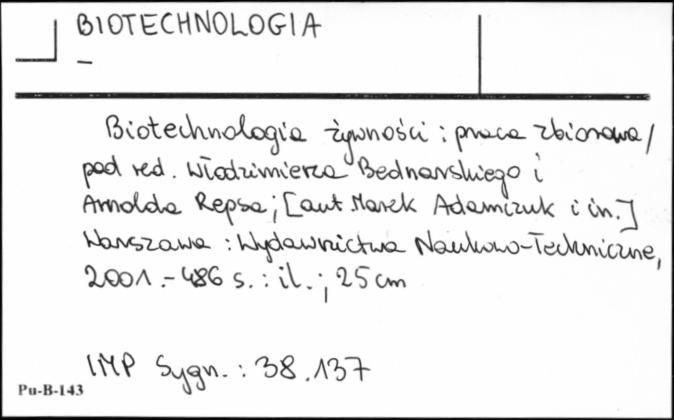 BIOTECHNOLOGIA
–
Biotechnologia żywności : praca zbiorowa /
pod red. Włodzimierza Bednarskiego i
Arnolda Repsa ; [aut. Marek Adamczuk i in.]
Warszawa : Wydawnictwa Naukowo-Techniczne,
2001. - 486 s. : il. ; 25 cm
IMP Sygn. : 38.137
Pu-B-143